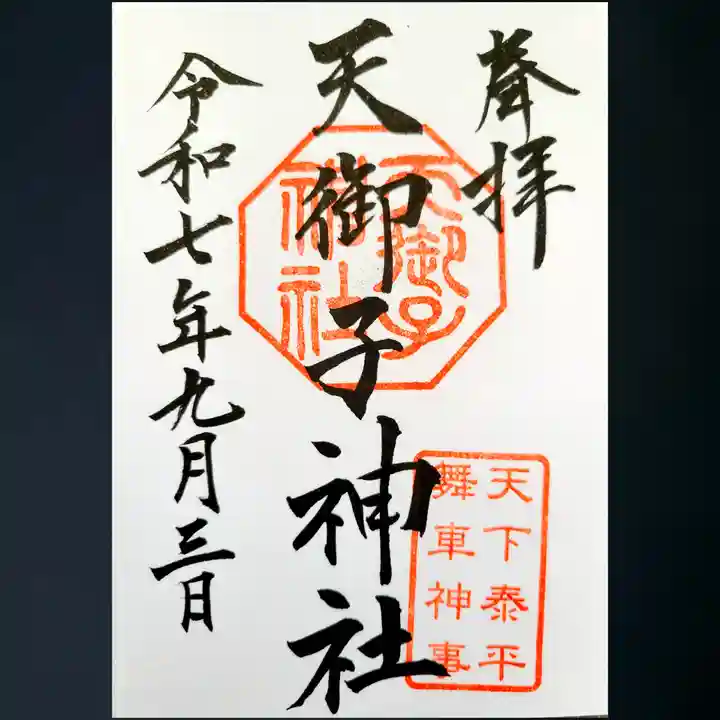 聲拝
天御子神社
令和七年九月三日
天御子
神社
天下泰平
舞車神事